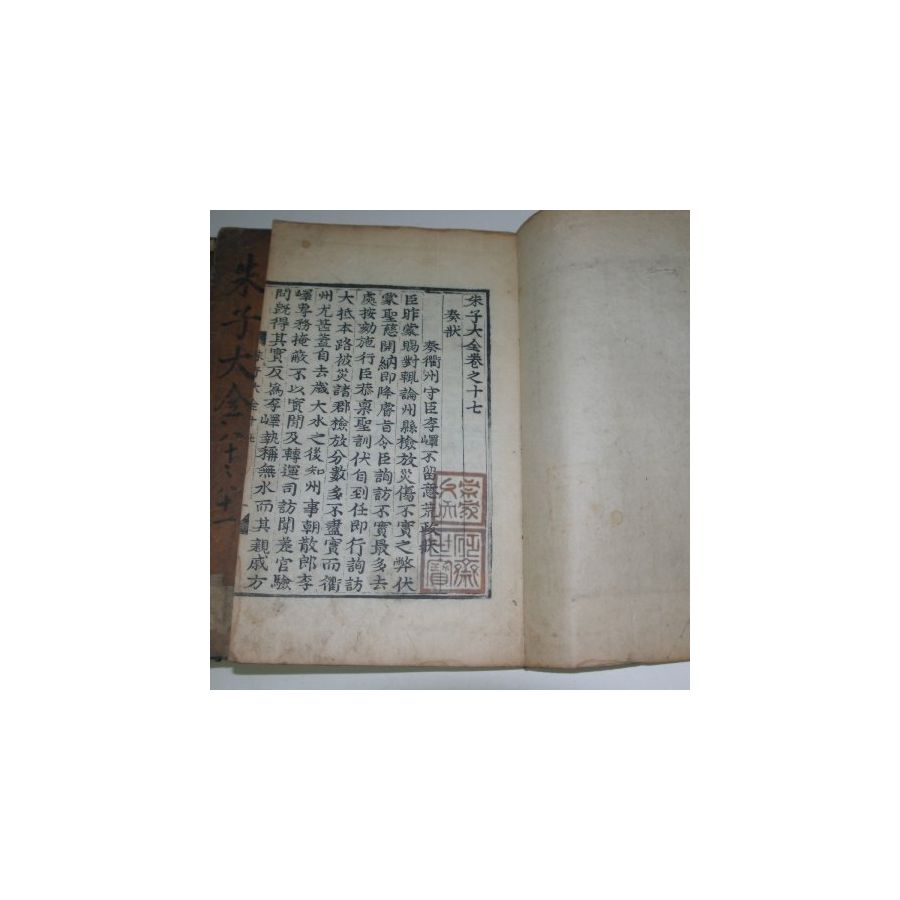 朱子大全卷之十七
奏狀
奏衢州守臣李嶧不留意荒政狀
臣昨蒙賜對輒論州縣檢放災傷不實之弊伏
蒙聖慈開納即降睿旨令臣詢訪不實最多去
處按劾施行臣恭稟聖訓伏自到任即行詢訪
大抵本路被災諸郡檢放分數多不盡實而衢
州尤甚蓋自去歲大水之後知州事朝散郎李
嶧專務掩蔽不以實聞及轉運司訪聞差官驗
問旣得其實反爲李嶧執稱無水而其親戚方
朱子大全十七
朱子大全